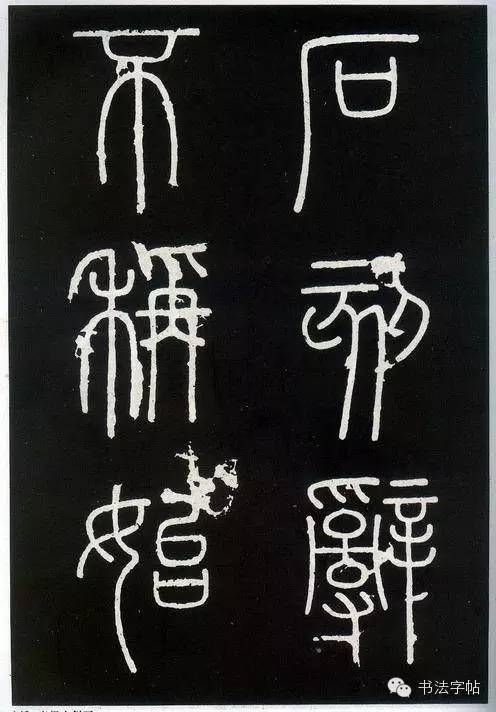 石刻辭
不稱始
书法字帖